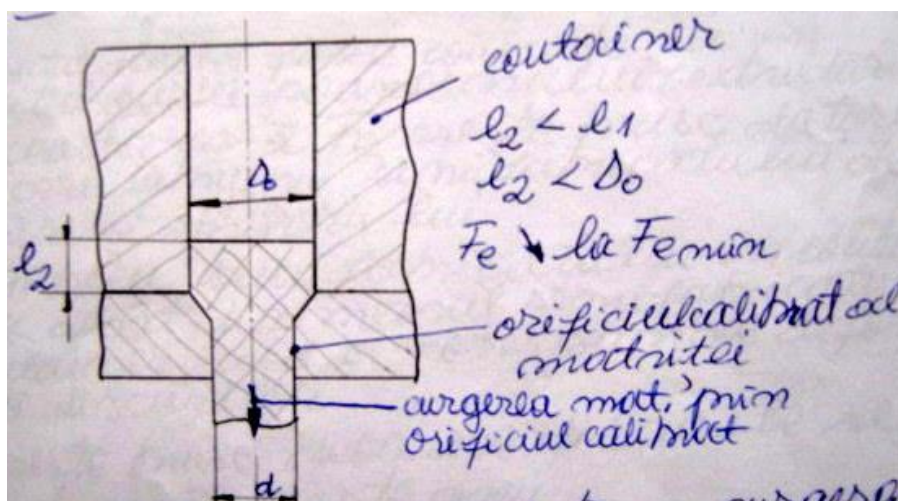 container
l2 < l1
l2 < D0
Fe ↘ la Femin
D0
l2
orificiul calibrat al
matritei
curgerea mat. prin
orificiul calibrat
d